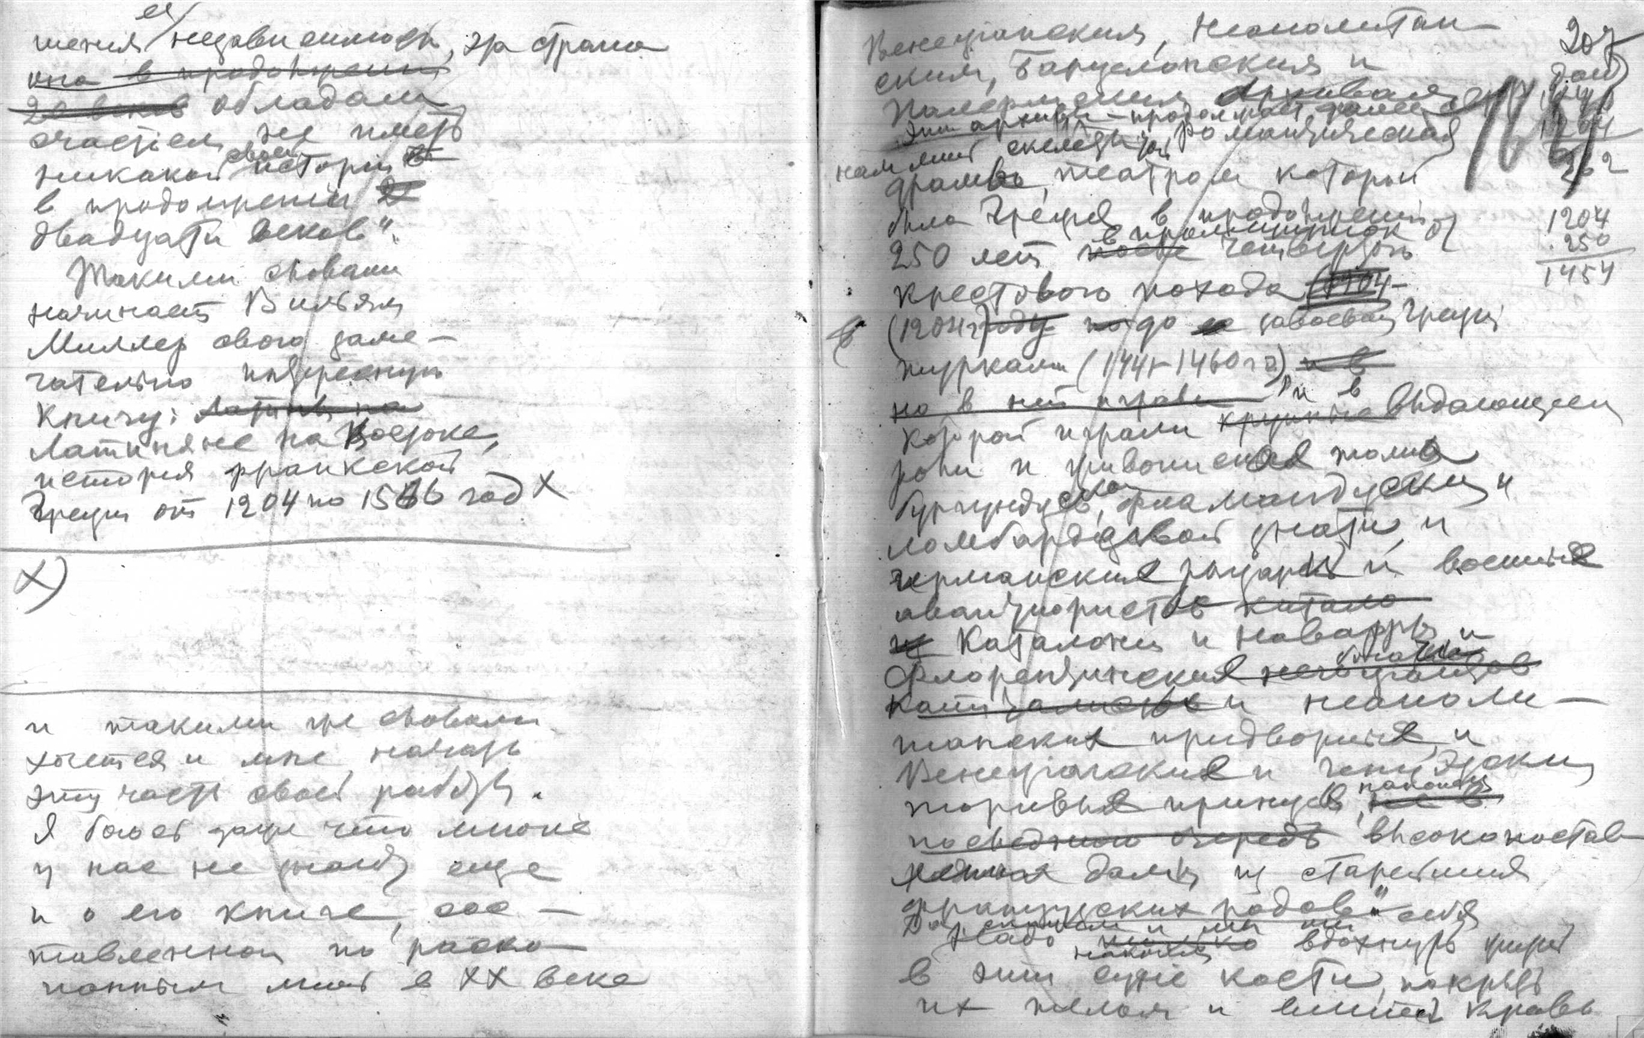 ея
шения независимость, эта страна
она в продолжении
20 веков обладала
счастьем не иметь
никакой своей истории
в продолжении
двадцати веков".
Такими словами
начинает Вильям
Миллер свою заме-
чательно интересную
книгу: Латиняне на
Латиняне на Востоке,
история франкской
Греции от 1204 по 1566 год X
X)
и такими же словами
хочется и мне начать
эту часть своей работы.
Я боюсь даже что многие
у нас не знают еще
и о его книге, сос-
тавленной по раско-
панным лишь в XX веке
207
Венецианским, Неаполитан-
ским, Барцелонским и
Палермским архивам
Эти архивы — продолжает далее
нам лишь скелет той романтической
драмы, театром которой
была Греция в продолжении
250 лет в промежуток от
после Четвертого
крестового похода (1204-
(1204 г) году по до завоевания Греции
турками (1441-1460 гг) и в
но в ней играли " и в
которой играли крупные выдающиеся
роли и живописная толпа
бургундской, фламандской и
ломбардской знати, и
германские рыцари и военные
авантюристы катало
из Каталонии и Наварры, и
Флорентинские
капиталисты и неаполи-
танские придворные, и
Венецианские и Генуэзские
торговые принцы, наконец
последнюю очередь высокопостав-
ленные дамы из старейших
французских родов"
Надо только вдохнуть
наконец
в эти сухие кости, покрыть
их телом и влить кровь
1204
250
1454